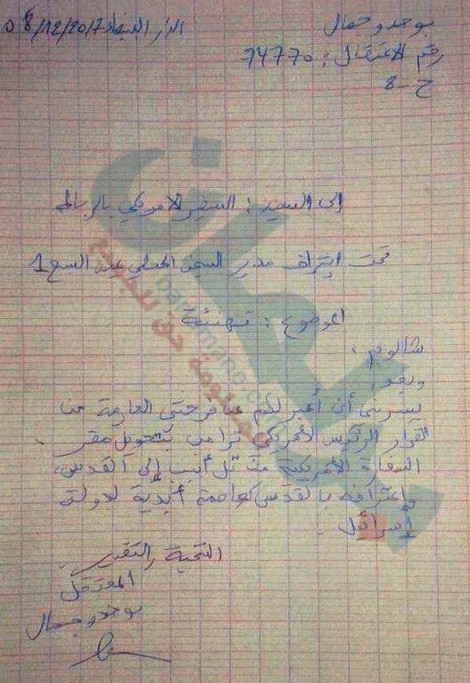 بوحدو جمال
الدار البيضاء 08/12/2017
رقم الاعتقال : 74770
ح - 8
إلى السيد : السفير الأمريكي بالرباط
تحت إشراف مدير السجن المحلي عين السبع 1
الموضوع : تهنئة
شالوم ،
وبعد ،
يسرني أن أعبر لكم عن فرحتي العارمة من
القرار الرئيس الأمريكي ترامب بتحويل مقر
السفارة الأمريكية من تل أبيب إلى القدس،
واعترافه بالقدس كعاصمة أبدية لدولتي
إسرائيل .
التحية والتقدير .
المعتقل
بوحدو جمال
barlamane.com
المعلومة حق للجميع